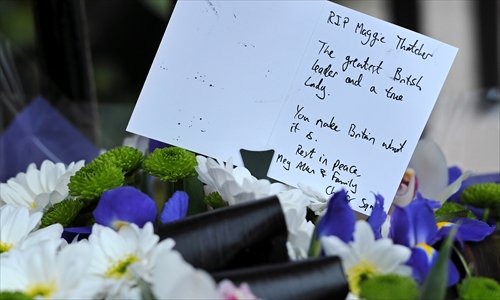 RIP Maggie Thatcher
The greatest British
leader and a true
Lady.
You make Britain what
it is.
Rest in peace
Meg Alan & Family